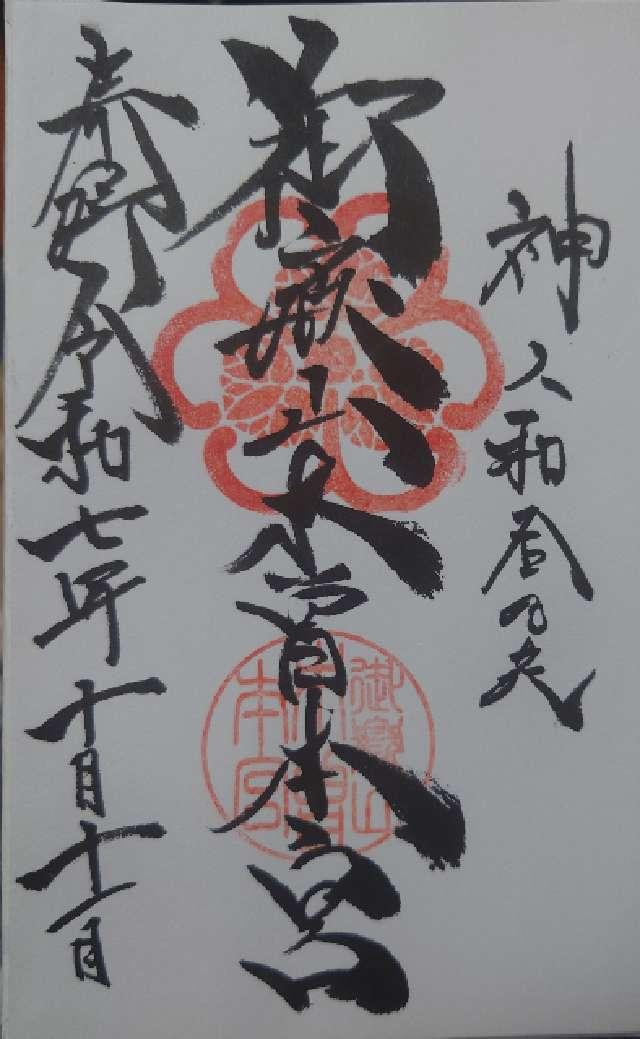 神人和
御嶽山木曽本宮
奉拝 令和七年十月十一日
御嶽山
木曽
本宮